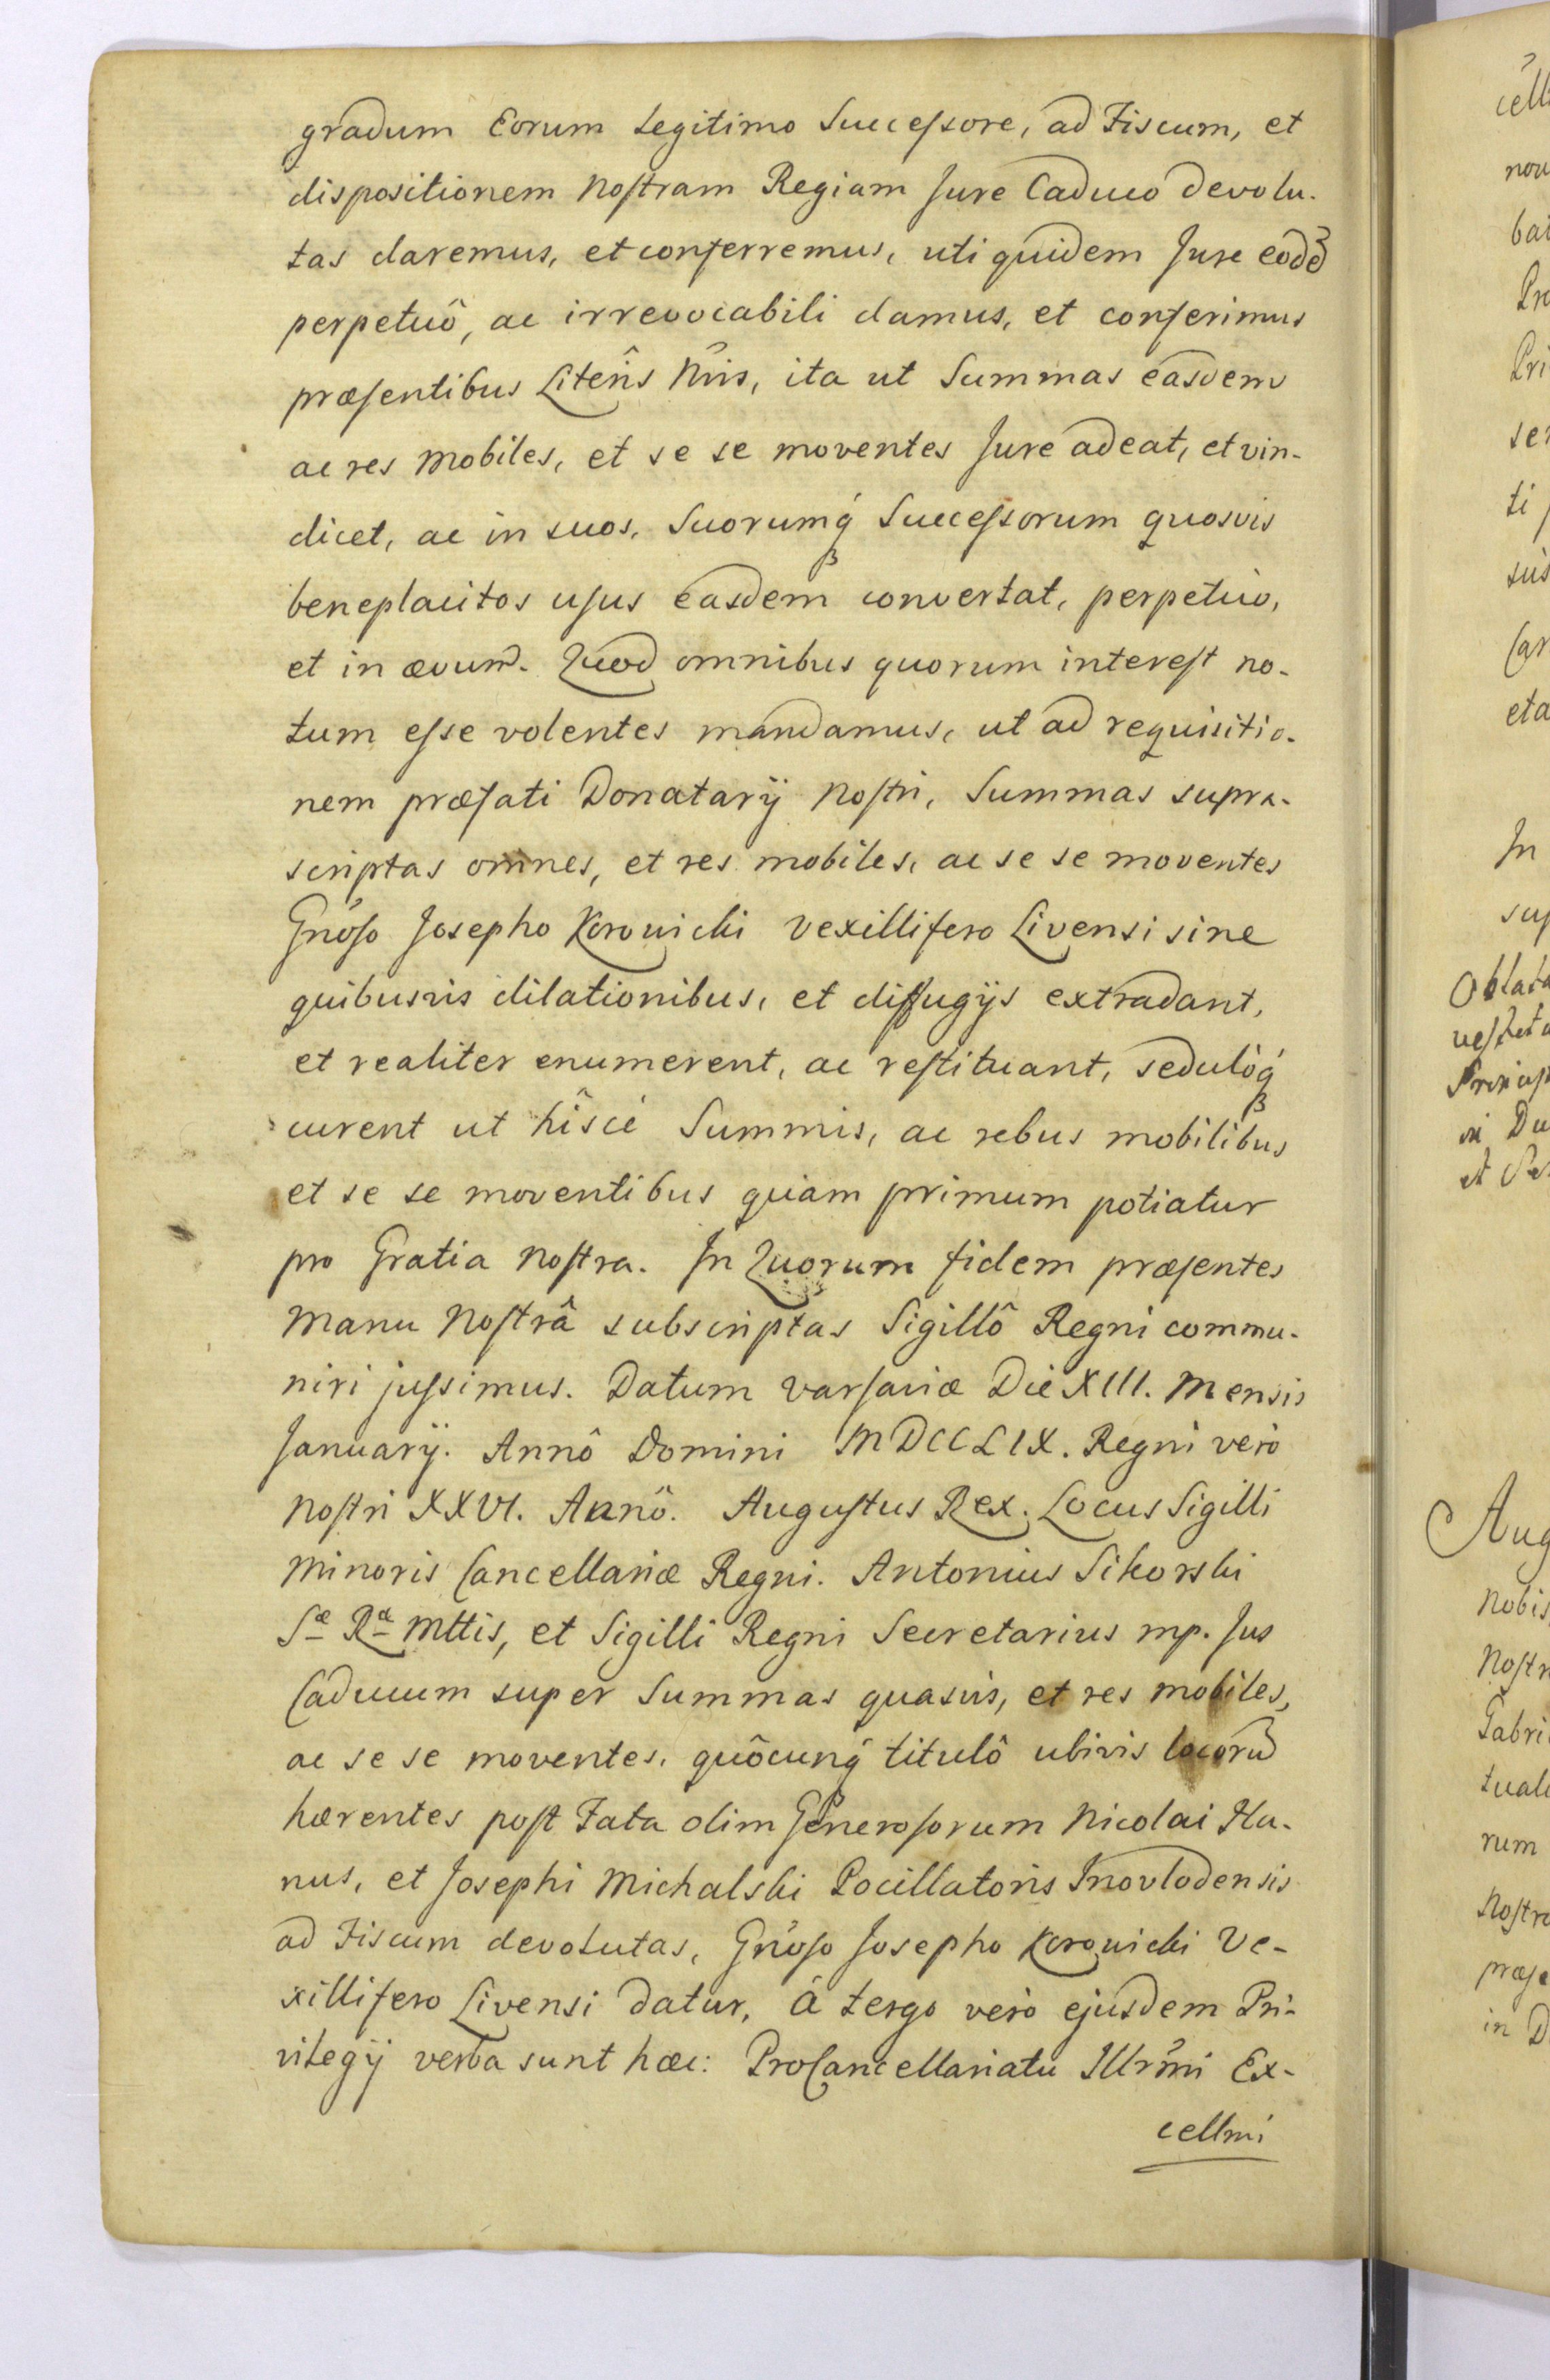 gradum Eorum Legitimo Successore, ad Fiscum, et
dispositionem Nostram Regiam Jure Caduco devolu-
tas daremus, et conferremus, uti quidem Jure eodẽ
perpetuô, ac irrevocabili damus, et conferimus
præsentibus Literîs Nr̃is, ita ut Summas easdem
ac res Mobiles, et se se moventes Jure adeat, et vin-
dicet, ac in suos, Suorumq́ Successorum quosvis
beneplacitos usus easdem convertat, perpetuo,
et in ævum. Quod omnibus quorum interest no-
tum esse volentes mandamus, ut ad requisitio-
nem præfati Donatarij Nostri, Summas supra-
scriptas omnes, et res mobiles, ac se se moventes
Gnõso Josepho Kurowicki Vexillifero Livensi sine
quibusvis dilationibus, et diffugijs extradant,
et realiter enumerent, ac restituant, sedulòq́
curent ut hîscé Summis, ac rebus mobilibus
et se se moventibus quam primum potiatur
pro Gratia Nostra. In Quorum fidem præsentes
Manu Nostrâ subscriptas Sigillô Regni commu-
niri jussimus. Datum Varsaviæ Die XIII. Mensis
Januarij. Annô Domini MDCCLIX. Regni verò
Nostri XXVI. Annô. Augustus Rex. Locus Sigilli
Minoris Cancellariæ Regni. Antonius Sikorski
Sæ Ræ Mttis, et Sigilli Regni Secretarius mp. Jus
Caducum super Summas quasvis, et res mobiles,
ac se se moventes, quôcunq́ titulô ubivis locorũ
hærentes post Fata olim Generosorum Nicolai Ha-
nus, et Josephi Michalski Pocillatoris Inovlodensis
ad Fiscum devolutas, Gnõso Josepho Kurowicki Ve-
xillifero Livensi datur, á tergo verò ejusdem Pri-
vilegij verba sunt hæc: ProCancellariatu Illr̃mi Ex-
cellmi
cell
nou
Pri
ti
eta
In
sup
Oblata
Aug
Nobis
Nostr
Gabri
tual
rum
Nostr
præse
in D